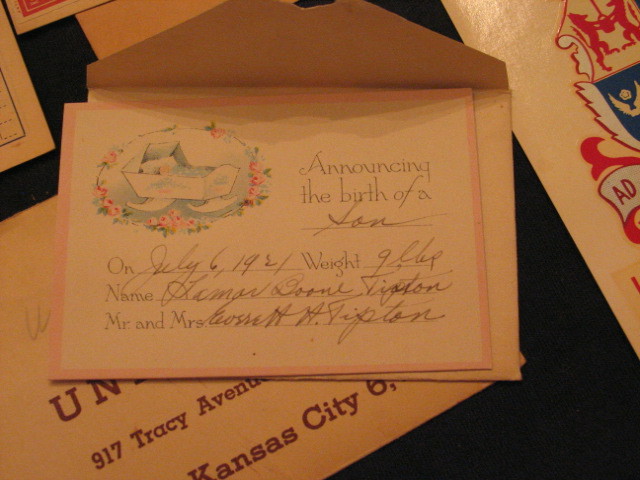 Announcing
the birth of a
Son
On July 6, 1921 Weight 9 lbs
Name Lamar Doane Tipton
Mr. and Mrs Everett H. Tipton
UN
917 Tracy Avenue
Kansas City 6,
AD